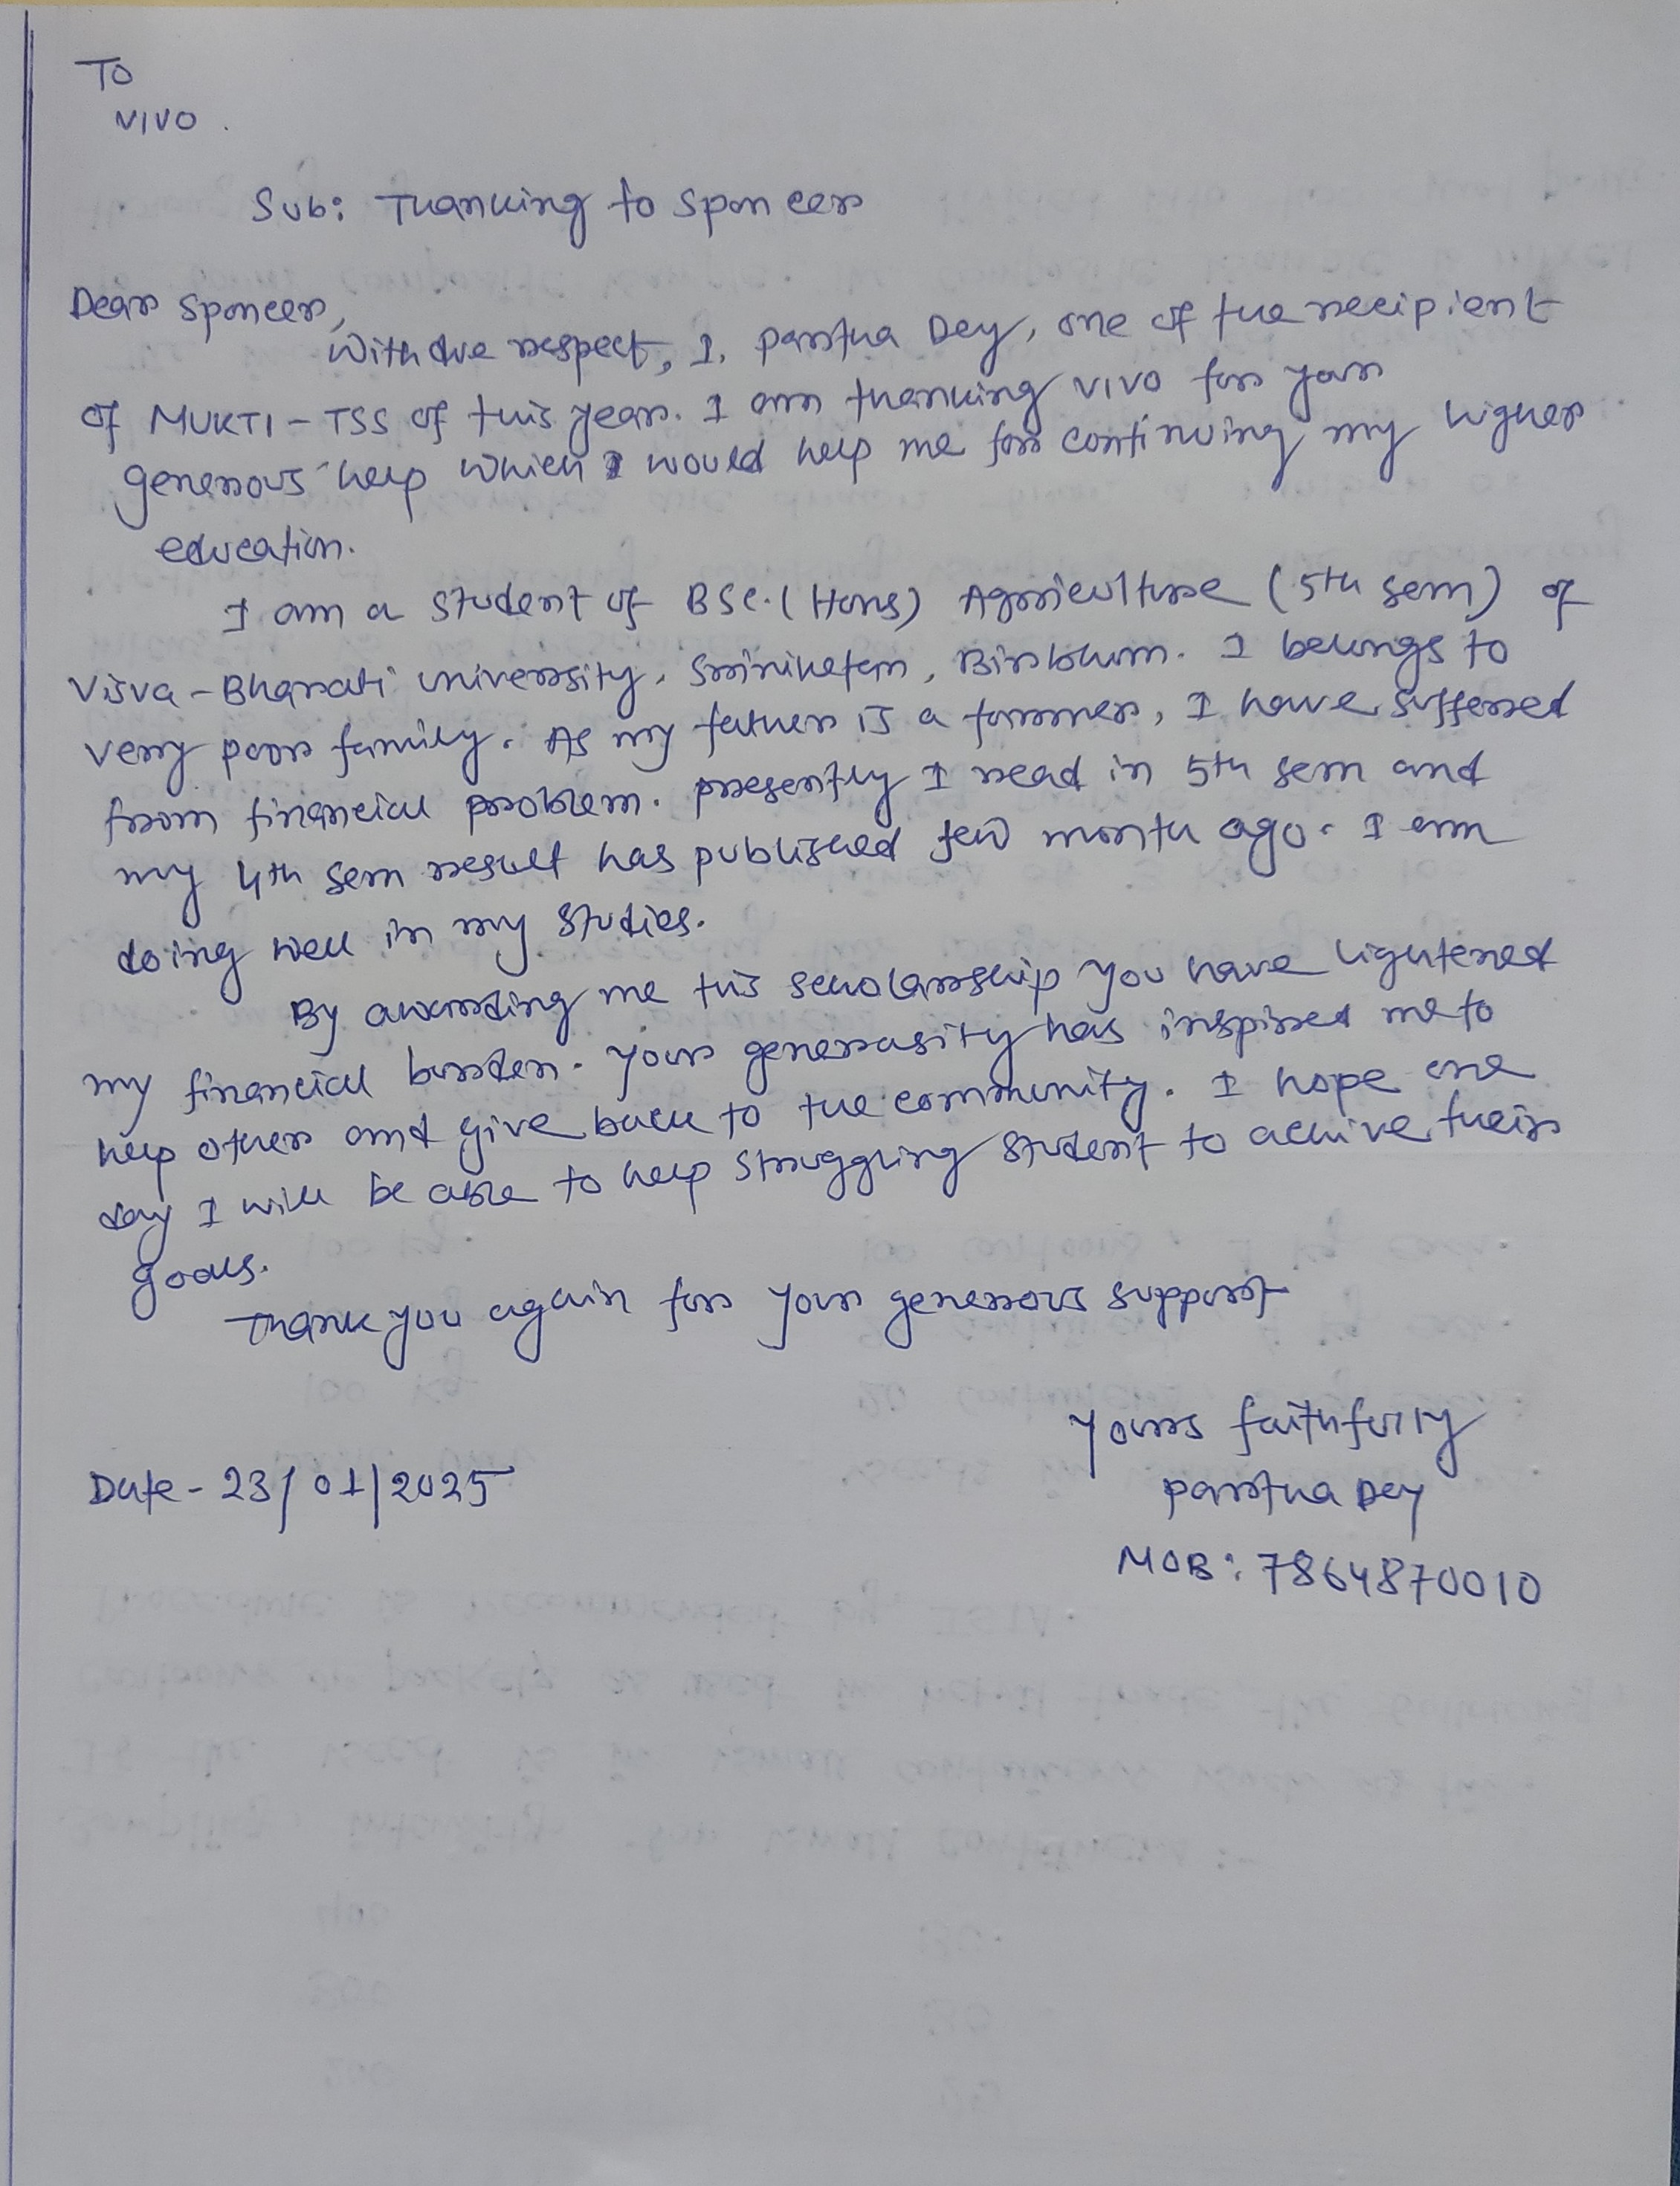 To
VIVO.
Sub: Thanking to Sponcer
Dear Sponcer,
With due respect, I, Partha Dey, one of the recipient
of MUKTI-TSS of this year. I am thanking VIVO for your
generous help which I would help me for continuing my higher
education.
I am a student of BSc.(Hons) Agriculture (5th sem) of
Visva-Bharati University, Sriniketan, Birbhum. I belongs to
very poor family. As my father is a farmer, I have suffered
from financial problem. presently I read in 5th sem and
my 4th sem result has published few month ago. I am
doing well in my studies.
By awarding me this scholarship you have lightened
my financial burden. Your generasity has inspired me to
help other and give back to the community. I hope one
day I will be able to help struggling student to achive their
goals.
Thank you again for your generous support
Yours faithfully
Partha Dey
Date - 23/01/2025
MOB: 7864870010